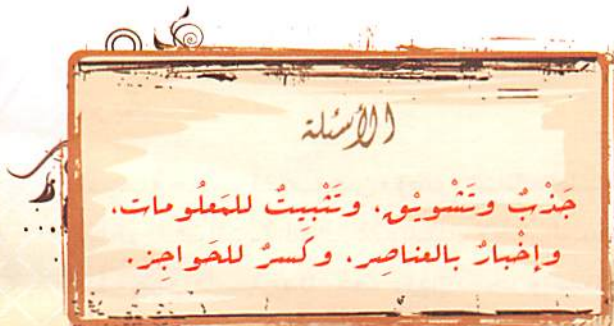 الأسئلة
جَذْبٌ وتَشْويْق، وتَثْبِيتٌ للمَعلُومات،
وإخْبارٌ بالعناصِر، وكَسرٌ للحَواجِز.